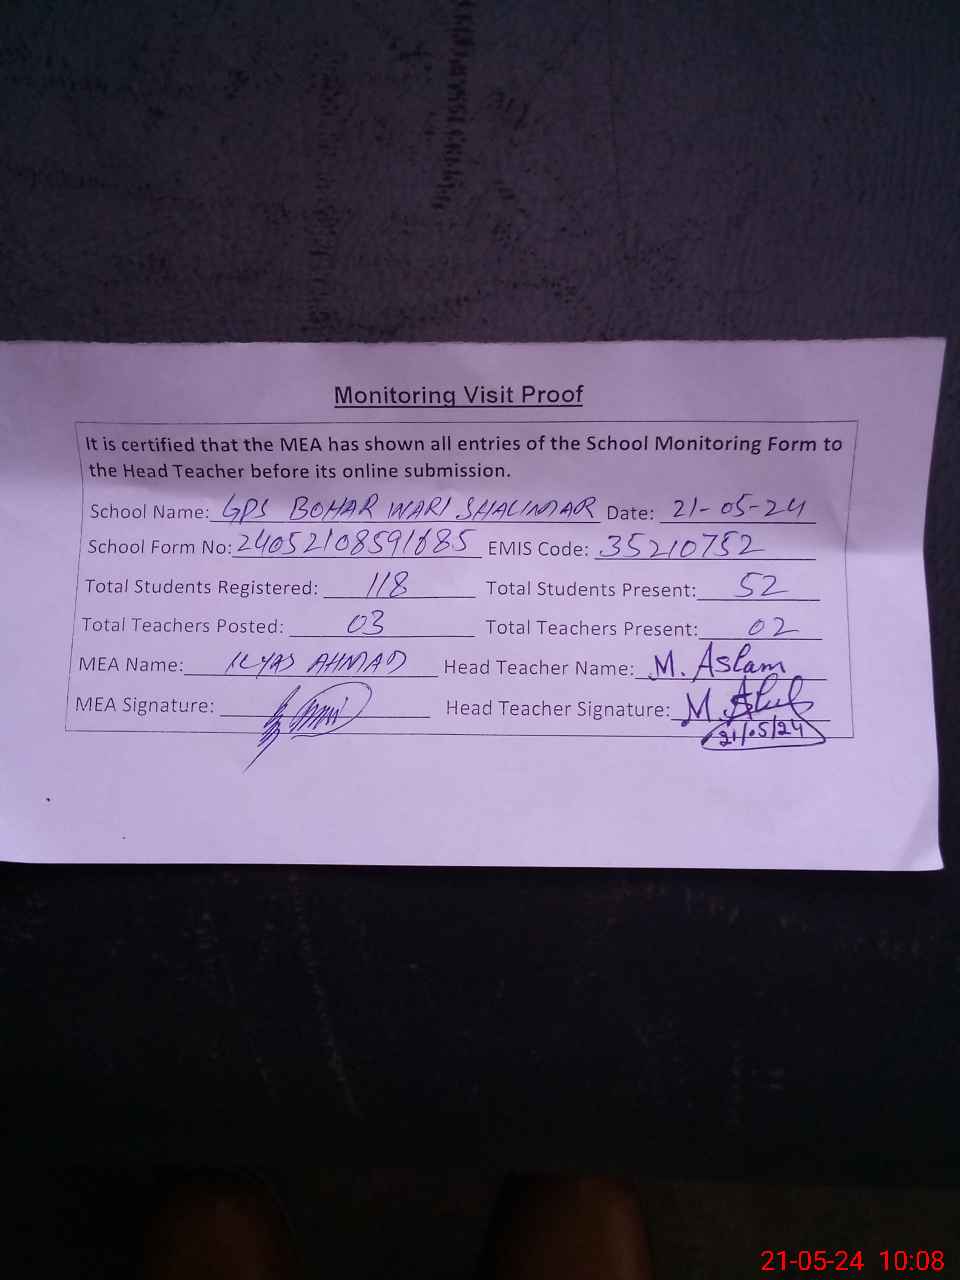 Monitoring Visit Proof
It is certified that the MEA has shown all entries of the School Monitoring Form to
the Head Teacher before its online submission.
School Name: GPS BOHAR WARI SHALIMAR Date: 21-05-24
School Form No: 24052108591685 EMIS Code: 35210752
Total Students Registered: 118 Total Students Present: 52
Total Teachers Posted: 03 Total Teachers Present: 02
MEA Name: ILYAS AHMAD Head Teacher Name: M. Aslam
MEA Signature: Head Teacher Signature: M.
21/05/24
21-05-24 10:08